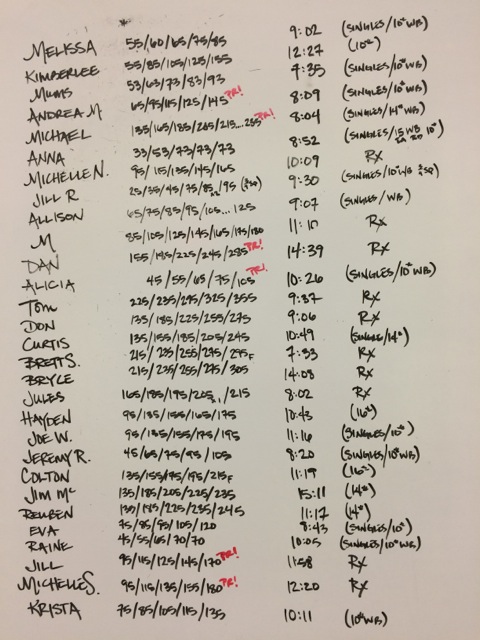 MELISSA 55/60/65/75/85 9:02 (SINGLES/10# WB)
KIMBERLEE 55/85/105/125/155 12:27 (10#)
MUMS 53/63/73/83/93 7:35 (SINGLES/10# WB)
ANDREA M 65/95/115/125/145 PR! 8:09 (SINGLES/10# WB)
MICHAEL 135/165/185/205/215...255 PR! 8:04 (SINGLES/14# WB)
ANNA 33/53/73/73/73 8:52 (SINGLES/ 10#)
MICHELLE N. 95/115/135/145/165 10:09 RX
JILL R 25/35/45/75/85 /95 9:30 (SINGLES/10# WB)
ALLISON 65/75/85/95/105...125 9:07 (SINGLES/WB)
M 85/105/125/145/165/175/180 11:10 RX
DAN 155/195/225/245/285 PR! 14:39 RX
ALICIA 45/55/65/75/105 PR! 10:26 (SINGLES/10# WB)
TOM 225/235/295/325/355 9:37 RX
DON 135/185/225/255/275 9:06 RX
CURTIS 135/155/185/205/245 10:49 (SINGLE/14#)
BRETT S. 215/235/255/275/295F 7:33 RX
BRYCE 215/235/255/275/305 14:08 RX
JULES 165/185/195/205/215 8:02 RX
HAYDEN 95/135/155/165/175 10:43 (16#)
JOE W. 95/135/155/175/195 11:16 (SINGLES/10#)
JEREMY R. 45/65/75/95/105 8:20 (SINGLES/10# WB)
COLTON 135/155/175/195/215F 11:19 (16#)
JIM MC 135/185/205/225/235 15:11 (14#)
REUBEN 135/185/225/235/245 11:17 (14#)
EVA 75/85/95/105/120 8:43 (SINGLES/10#)
RAINE 45/55/65/70/70 10:05 (SINGLES/10# WB)
JILL 95/115/125/145/170 PR! 11:58 RX
MICHELLE S. 95/115/135/155/180 PR! 12:20 RX
KRISTA 75/85/105/115/135 10:11 (10# WB)